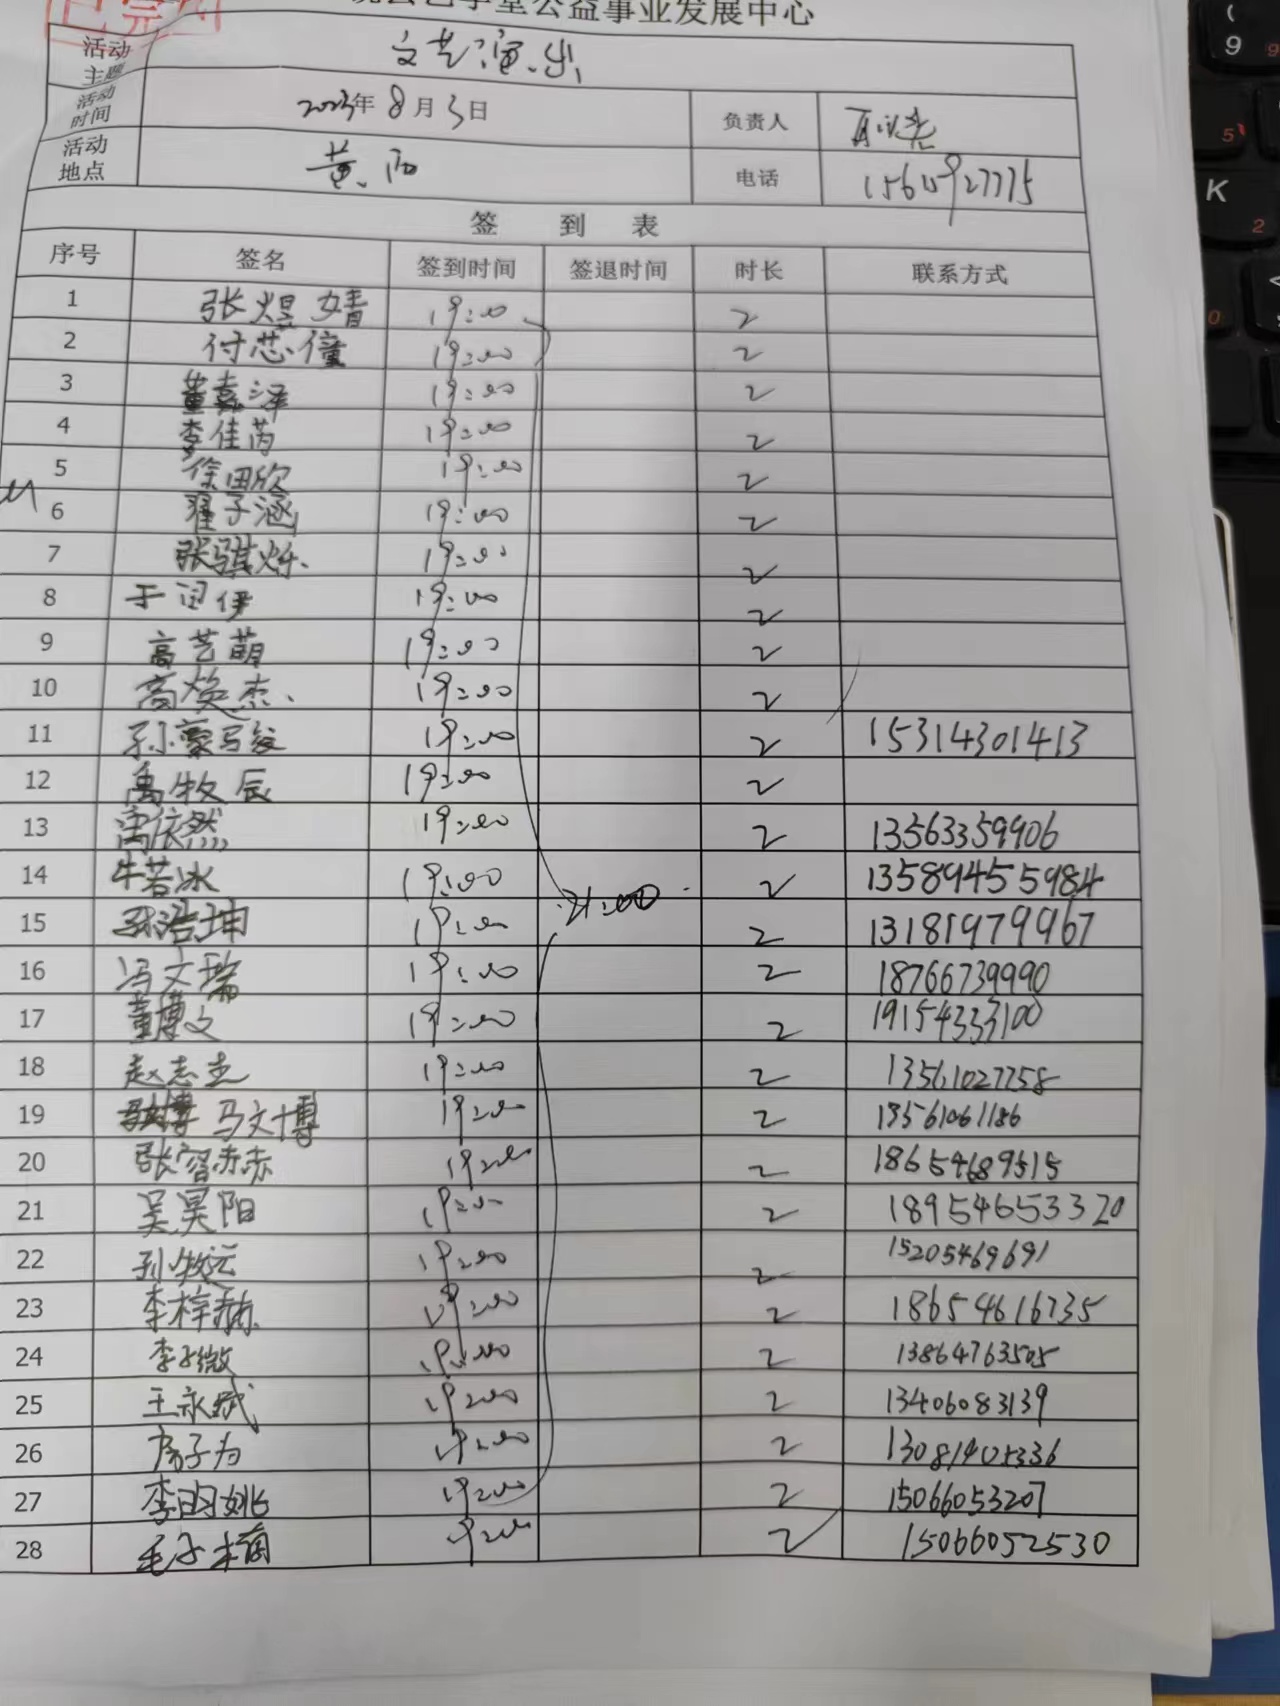 公益事业发展中心
活动主题 文艺演出
活动时间 2023年8月3日 负责人
活动地点 黄 电话
签 到 表
序号 签名 签到时间 签退时间 时长 联系方式
1 张煜婧 19:00 2
2 付芯僮 19:00 2
3 董嘉泽 19:00 2
4 李佳芮 19:00 2
5 徐田欣 19:00 2
6 翟子涵 19:00 2
7 张骐烁 19:00 2
8 于 伊 19:00 2
9 高艺萌 19:00 2
10 高焕杰 19:00 2
11 孙豪 19:00 2 15314301413
12 禹牧辰 19:00 2
13 禹依然 19:00 2 13563359906
14 牛若冰 19:00 21:00 2 13589455984
15 浩坤 19:00 2 13181979967
16 冯文瑞 19:00 2 18766739990
17 董博文 19:00 2 19154333100
18 赵志 19:00 2 13561027758
19 马文博 19:00 2 13561061186
20 张容赫 19:00 2 18654689515
21 吴昊阳 19:00 2 18954653320
22 孙牧远 19:00 2 15205469691
23 李梓赫 19:00 2 18654616735
24 李子微 19:00 2 13864763505
25 王永斌 19:00 2 13406083139
26 房子为 19:00 2 13081405336
27 李昀姚 19:00 2 15066053207
28 毛子 19:00 2 15066052530